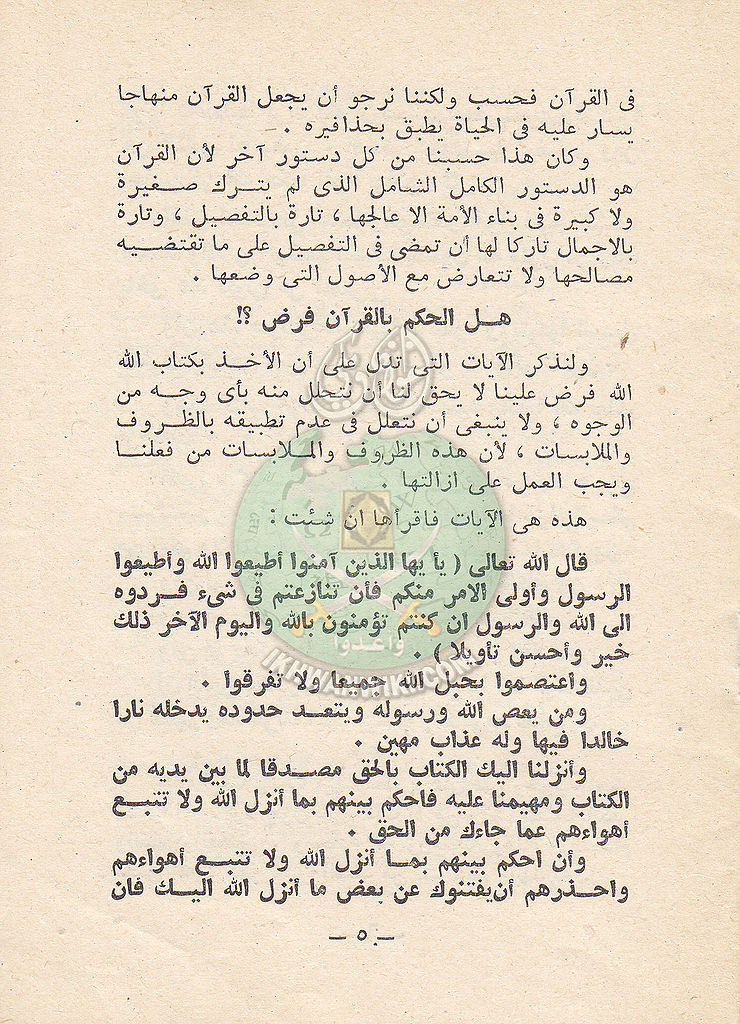 فى القرآن فحسب ولكننا نرجو أن يجعل القرآن منهاجا
يسار عليه فى الحياة يطبق بحذافيره .
وكان هذا حسبنا من كل دستور آخر لأن القرآن
هو الدستور الكامل الشامل الذى لم يتـرك صـغيرة
ولا كبيرة فى بناء الأمة الا عالجها ، تارة بالتفصيل ، وتارة
بالاجمال تاركا لها أن تمضى فى التفصيل على ما تقتضـيه
مصالحها ولا تتعارض مع الأصول التى وضعها .
هـل الحكم بالقرآن فرض ؟!
ولنذكر الآيات التى تدل على أن الأخـذ بكتاب الله
الله فرض علينا لا يحق لنا أن نتحلل منه بأى وجـه من
الوجوه ، ولا ينبغى أن نتعلل فى عدم تطبيقه بالظـروف
والملابسات ، لأن هذه الظروف والمـلابسات من فعلنـا
ويجب العمل على ازالتها .
هذه هى الآيات فاقرأها ان شئت :
قال الله تعالى ( يأيها الذين آمنوا أطيعوا الله وأطيعوا
الرسول وأولى الامر منكم فأن تنازعتم فى شىء فـردوه
الى الله والرسول ان كنتم تؤمنون بالله واليوم الآخر ذلك
خير وأحسن تأويلا ) .
واعتصموا بحبل الله جميعا ولا تفرقوا .
ومن يعص الله ورسوله ويتعـد حدوده يدخله نارا
خالدا فيها وله عذاب مهين .
وأنزلنا اليك الكتاب بالحق مصـدقا لما بين يديه من
الكتاب ومهيمنا عليه فاحكم بينهم بما أنزل الله ولا تتبـع
أهواءهم عما جاءك من الحق .
وأن احكم بينهم بمـا أنزل الله ولا تتبـع أهواءهم
واحـذرهم أن يفتنوك عن بعض ما أنزل الله اليـك فان
— ٥ —
وأعدوا
IKHWANWIKI.COM